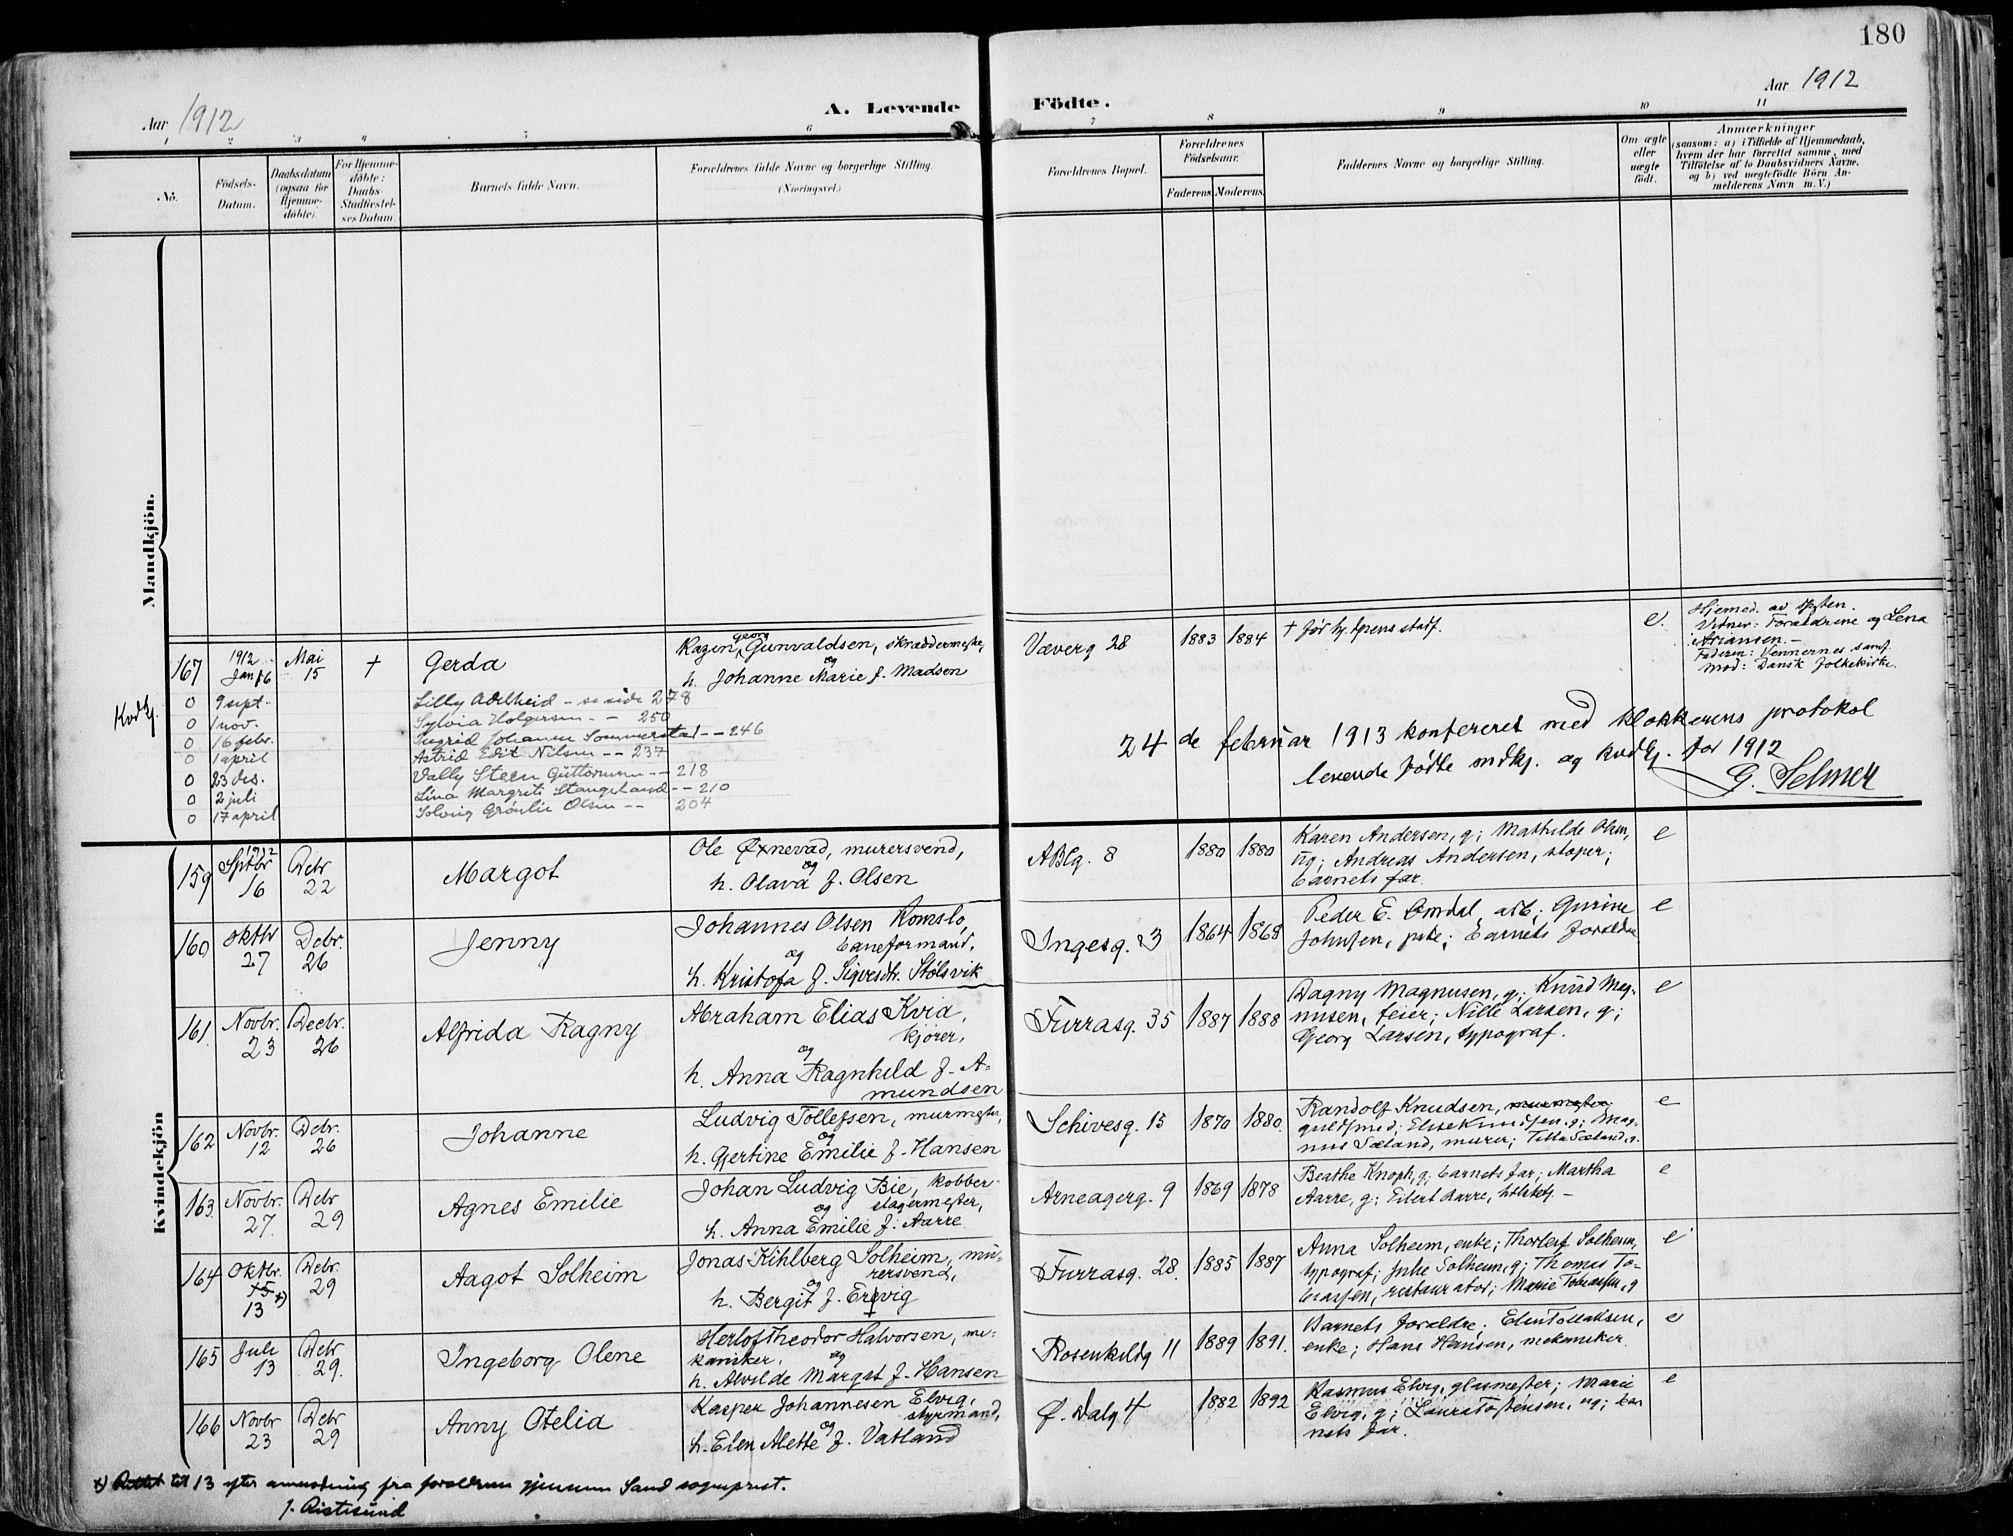 180
Aar 1912
A. Levende Födte.
Aar 1912
1 2 3 4 5 6 7 8 9 10 11
No.
Födsels-
Datum.
Daabsdatum
(ogsaa for
Hjemme-
döbte).
For Hjemme-
döbte:
Daabs-
Stadfæstel-
ses Datum.
Barnets fulde Navn.
Forældrenes fulde Navne og borgerlige Stilling.
(Næringsvei.)
Forældrenes Bopæl.
Forældrenes
Födselsaar.
Faderens. Moderens.
Faddernes Navne og borgerlige Stilling.
Om ægte
eller
uægte
født.
Anmærkninger
(saasom: a) i Tilfælde af Hjemmedaab,
hvem der har forrettet samme, med
Tilföielse af to Daabsvidners Navne,
og b) ved uægtefödte Börn An-
melderens Navn m. V.)
Mandkjön.
Kvdkj.
167
1912
Jan 16
Mai
15
+
Gerda
Ragin Georg Gunvaldsen, skræddermester,
og
h. Johanne Marie f. Madsen
Væverg 28
1883 1884
+ før
e.
Hjemed. av
Vidner: Forældrene og Lena
Ariansen. –
Faderen: Vennernes samf.
Mod: Dansk folkekirke.
0 9 sept. Lilly Adelheid – se side 278
0 1 nov. Sylvia Holgersen – – 250
0 16 febr. Ingrid Johanne Sommerstad – – 246
0 1 april Astrid Edit Nilsen – – 237
0 23 des. Vally Steen Guttormsen – – 218
0 2 juli Lina Margrete Stangeland – – 210
0 17 april Solveig Grönlie Olsen – – 204
24 de februar 1913 konfereret med klokkerens protokol
levende fødte mdkj. og kvdkj. for 1912
G. Selmer
Kvindekjön
159
1912
Sptbr
16
Debr
22
Margot
Ole Øxnevad, murersvend,
og
h. Olava f. Olsen
ABCg. 8
1880 1880
Karen Andersen, g; Mathilde Olsen,
ug; Andreas Andersen, støper;
barnets far.
e
160
Oktbr
27
Debr.
26
Jenny
Johannes Olsen Romslo,
baneformand,
og
h. Kristofa f. Sigvesdtr. Stølsvik
Ingesg. 23
1864 1868
Peder E. Omdal, arb; Gurine
Johnsen, pike; barnets forældre
e
161.
Novbr.
23
Decbr.
26
Alfrida Ragny
Abraham Elias Kvia,
kjører,
og
h. Anna Ragnhild f. A-
mundsen
Furrasg. 35
1887 1888
Dagny Magnusen, g; Knud Mag-
nusen, feier; Nille Larsen, g;
Georg Larsen, typograf.
e
162
Novbr.
12
Debr.
26
Johanne
Ludvig Tollefsen, murmester,
og
h. Gjertine Emilie f. Hansen
Schivesg. 15
1870 1880.
Randolf Knudsen, murmester
guldsmed; Elise Knudsen, g; Mag-
nus Sæland, murer; Tilla Sæland, g.
e
163.
Novbr.
27.
Debr
29
Agnes Emilie
Johan Ludvig Bie, kobber-
slagermester,
og
h. Anna Emilie f. Aarre
Arneagerg. 9
1869 1878
Beathe Knoph, g; barnets far; Martha
Aarre, g; Eilert Aarre, –
e
164
Oktbr.
15 x)
13
Debr.
29
Aagot Solheim
Jonas Kihlberg Solheim, mu-
rersvend,
og
h. Bergit f. Ersvig
Furrasg. 28.
1885 1887
Anna Solheim, enke; Thorleif Solheim,
typograf; Julie Solheim, g; Thomas To-
biassen, restauratør; Marie Tobiassen, g
e
165
Juli
13
Debr
29.
Ingeborg Olene
Herlof Theodor Halvorsen, me-
kaniker,
og
h. Alvilde Margot f. Hansen
Rosenkildg 11
1889 1891.
Barnets forældre; Elen Tollaksen,
enke; Hans Hansen, mekaniker.
e
166
Novbr
23
Debr
29
Anny Otelia
Kasper Johannesen Elvig,
styrmand,
og
h. Elen Alette f. Vatland
Ø. Dalg 4
1882 1892
Rasmus Elvig, glasmester; Marie
Elvig, g; Laura Tostensen, ug; bar
nets far.
e
x) Rettet til 13 efter anmodning fra forældrene gjennem Sand sogneprest.
J. Ristesund